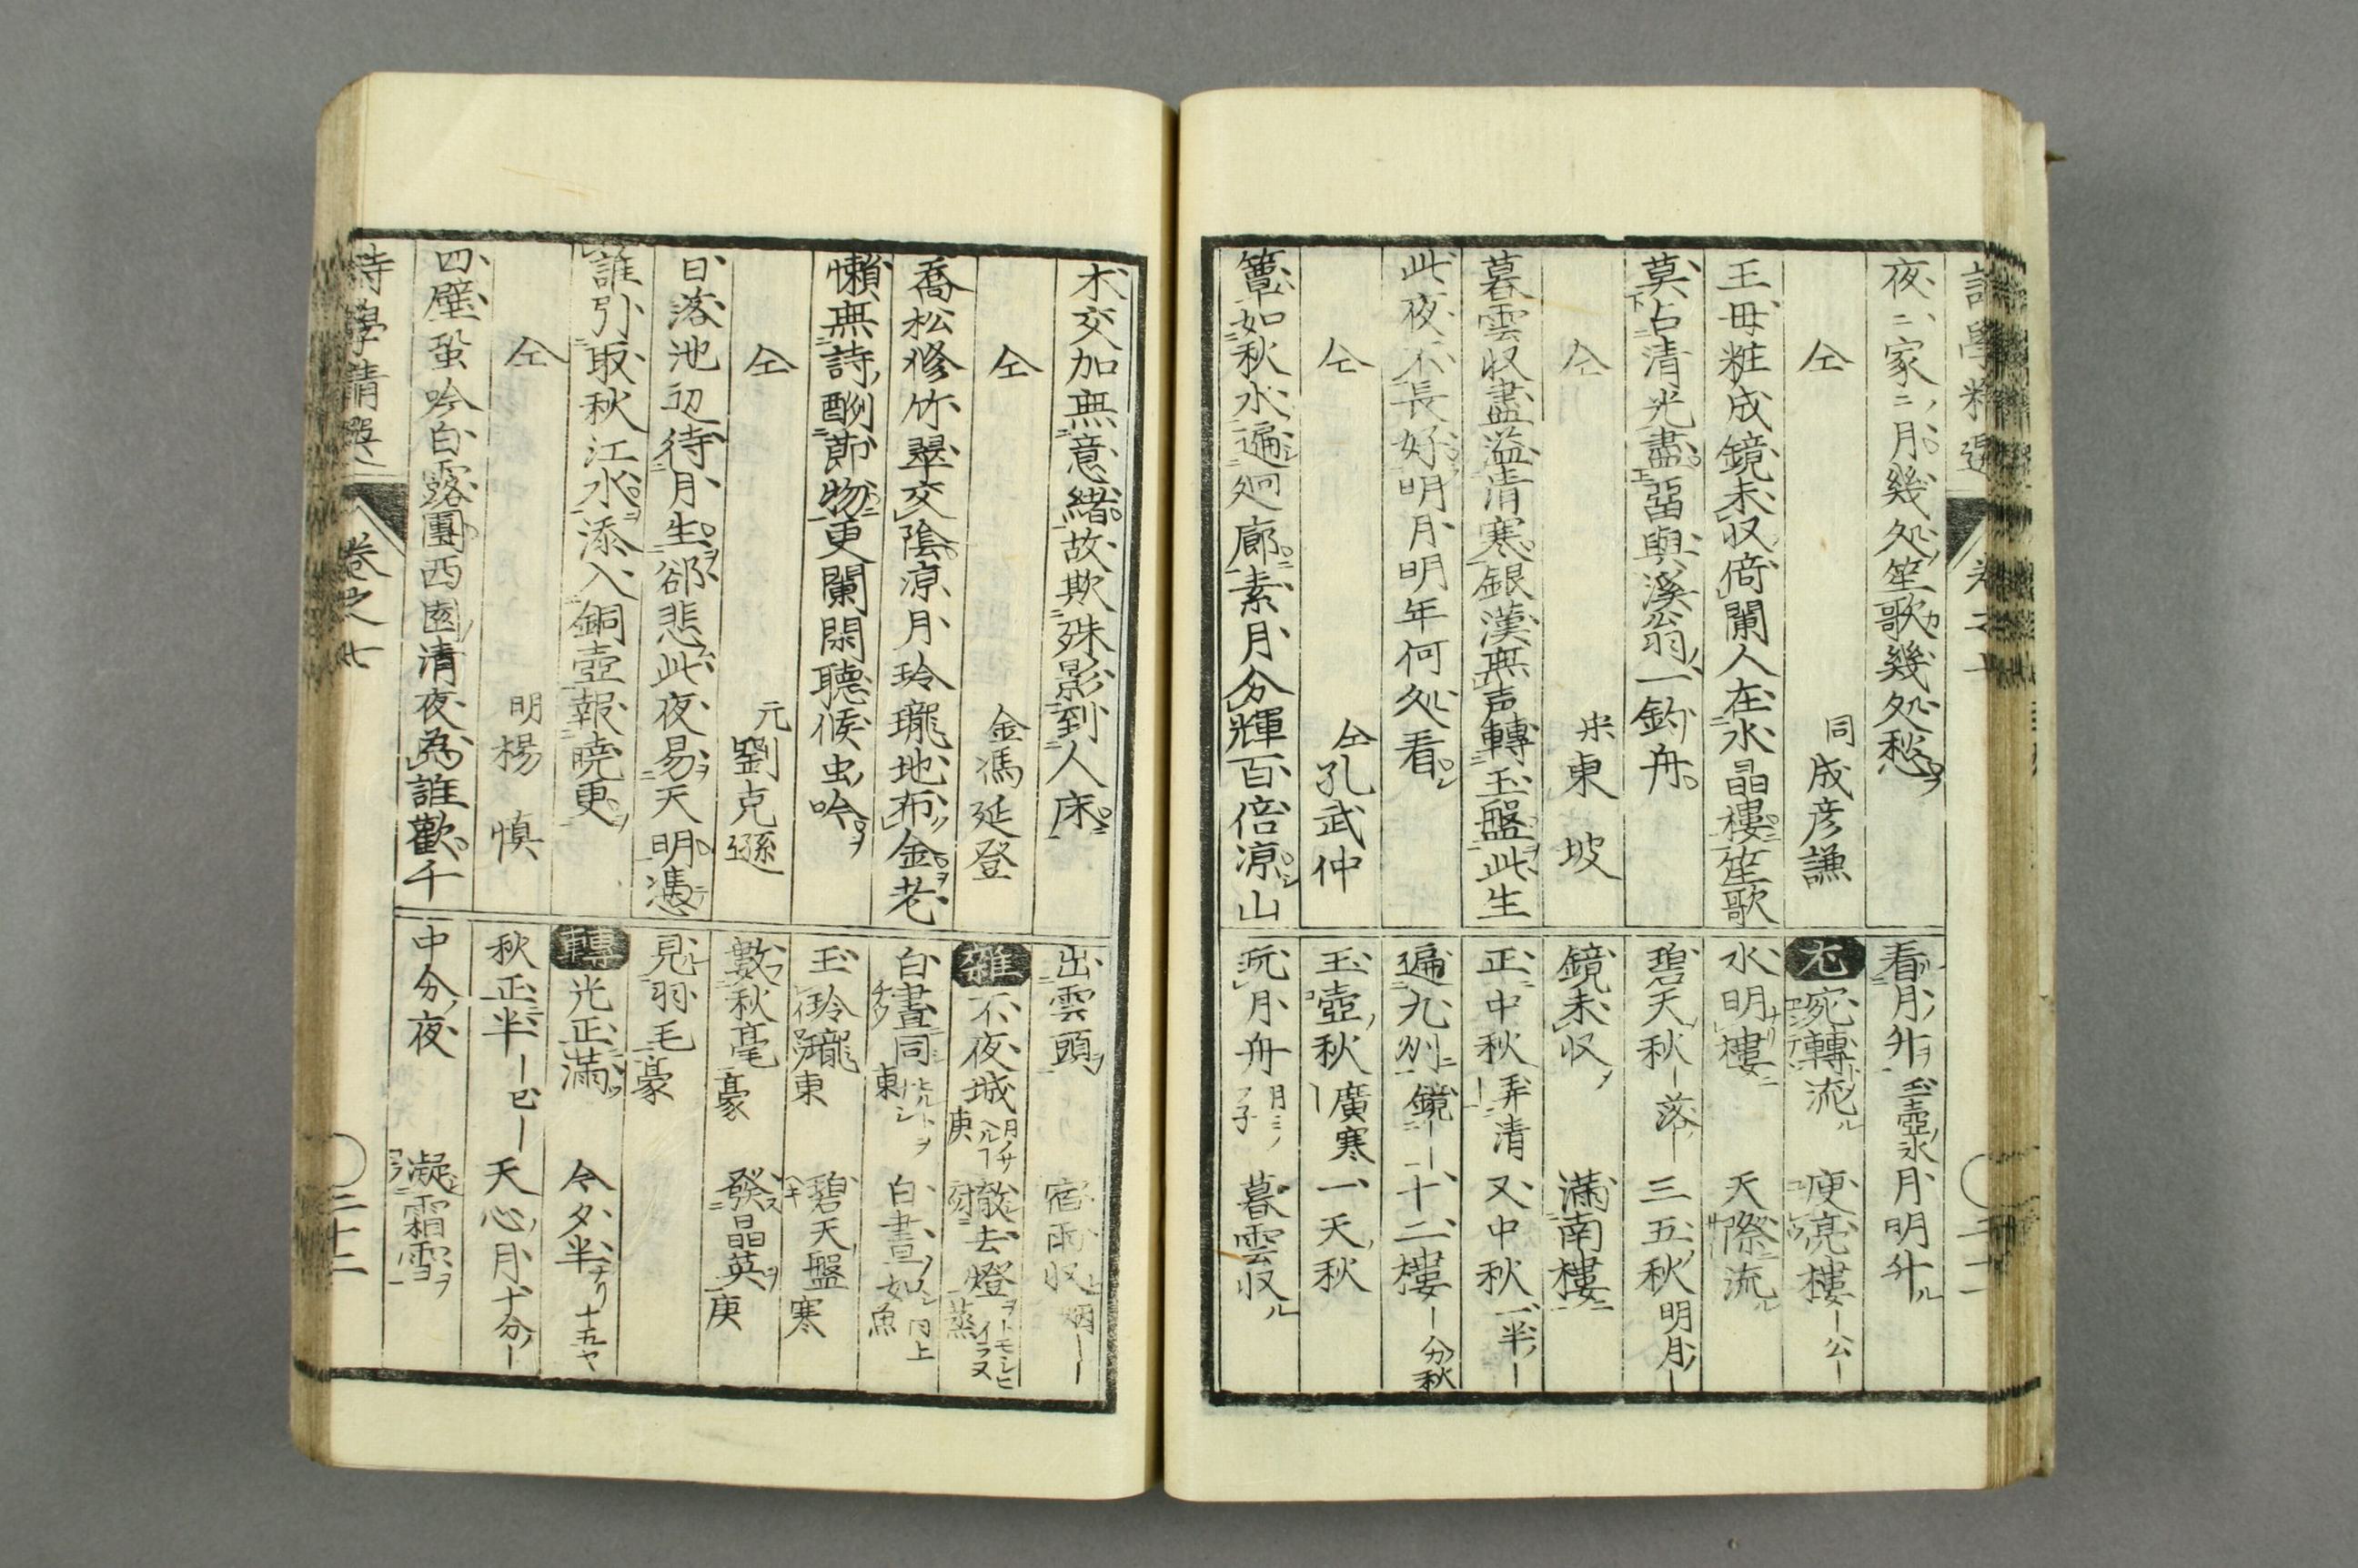 夜〻家〻月幾処笙歌幾処愁
仝 同成彦謙
王母粧成鏡未収倚闌人在水晶樓笙歌
莫占清光盡 與溪翁一釣舟
仝 宋東坡
暮雲収盡溢清寒銀漢無声轉玉盤此生
此夜不長好明月明年何処看
仝 仝孔武仲
簟如秋水遍廻廊素月分輝百倍凉山
看月升 玉壺氷 月明升
宛轉流 庾亮樓 公
水明樓 天際流
碧天秋 落 三五秋 明月
鏡未収 滿南樓
正中秋 弄清 又中秋 一半
遍九州 鏡 十二樓 分秋
玉壺秋 廣寒 一天秋
玩月舟 暮雲収
木交加無意緒故欺殊影到人床
仝 金馮延登
喬松修竹翠交陰凉月玲瓏地布金老
懶無詩酬節物更闌閑聽候虫吟
仝 元劉克遜
日落池辺待月生郤悲此夜易天明憑
誰引取秋江水添入銅壺報曉更
仝 明楊慎
四壁蛩吟白露團西園清夜為誰歡千
出雲頭 宿雨収 烟
雑 不夜城 庚 撤去燈 蒸
白晝同 東 白晝如 同上 魚
玉玲瓏 東 碧天盤 寒
數秋毫 豪 發晶英 庚
見羽毛 豪
轉 光正滿 今夕半 十五ヤ
秋正半 天心月 十分
中分夜 凝霜雪
詩學精選 卷之七 二十二